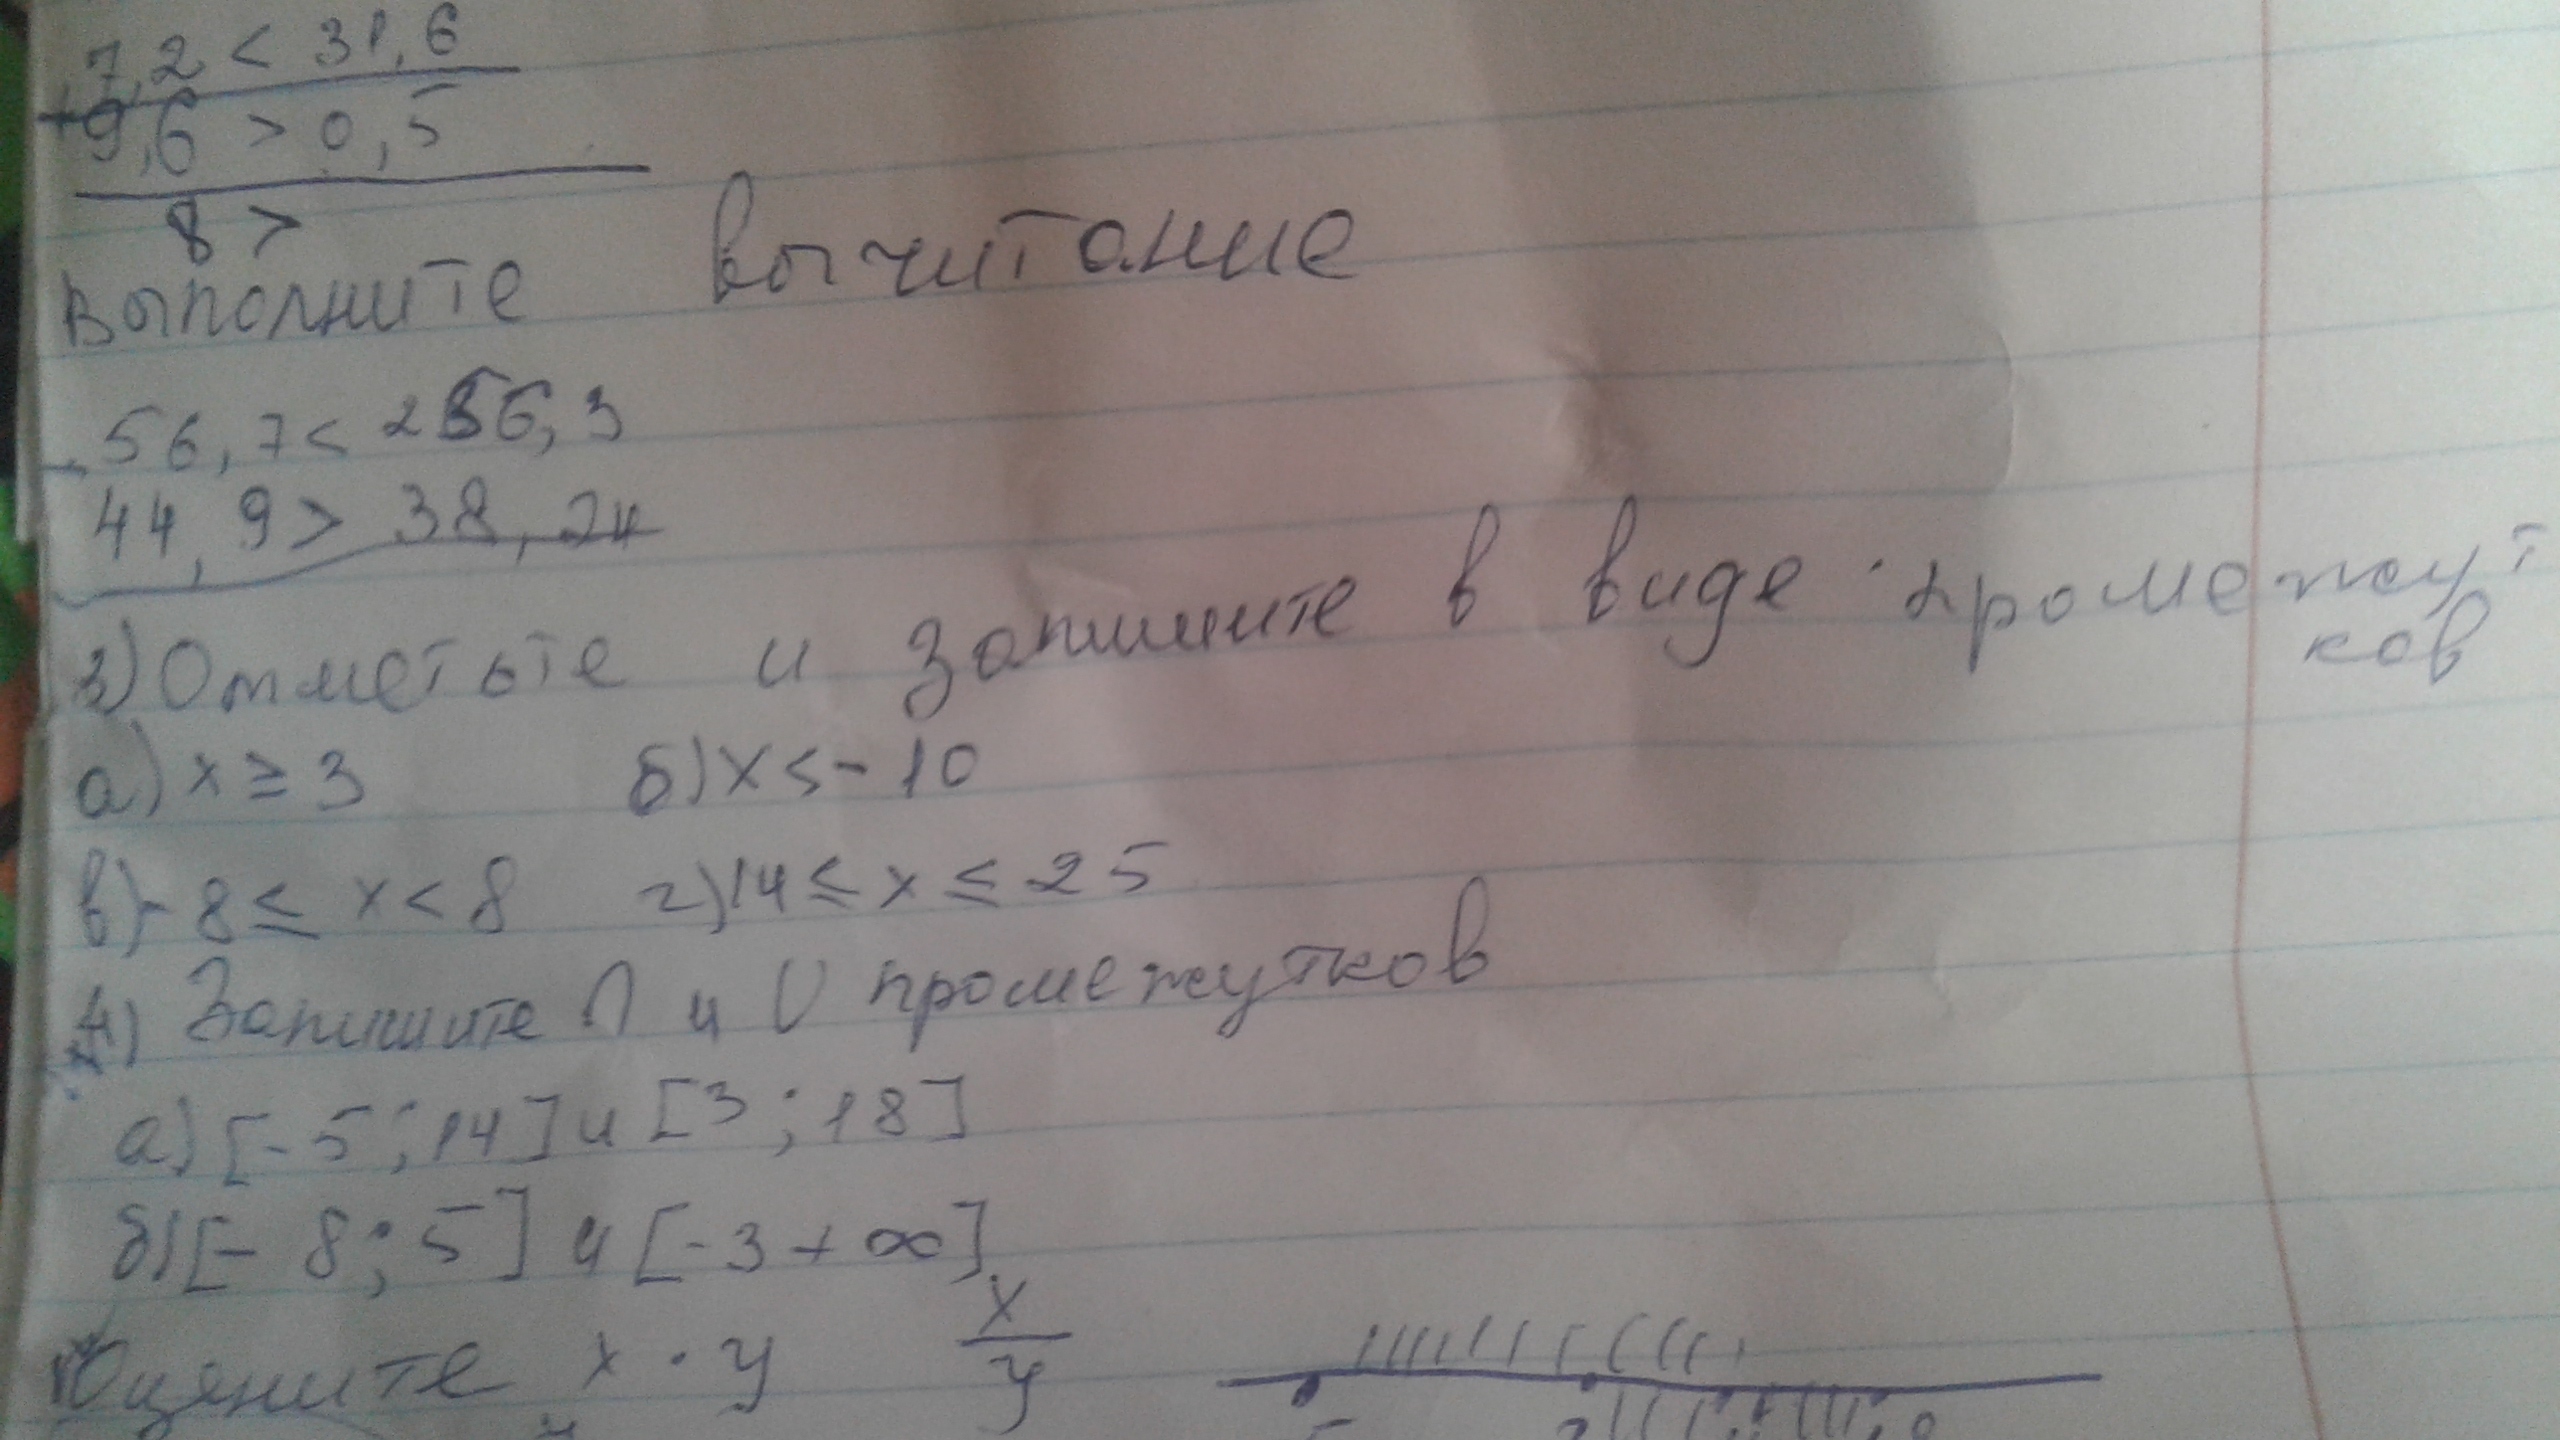 7,2 < 31,6
+9,6 > 0,5
8 >
Выполните вычитание
56,7 < 256,3
-
44,9 > 38,24
3) Отметьте и запишите в виде промежут
ков
а) x ≥ 3 б) x < -10
в) -8 ≤ x < 8 г) 14 ≤ x ≤ 25
4) Запишите ∩ и ∪ промежутков
а) [-5; 14] и [3; 18]
б) [-8; 5] и [-3 + ∞]
Оцените x · y x/y